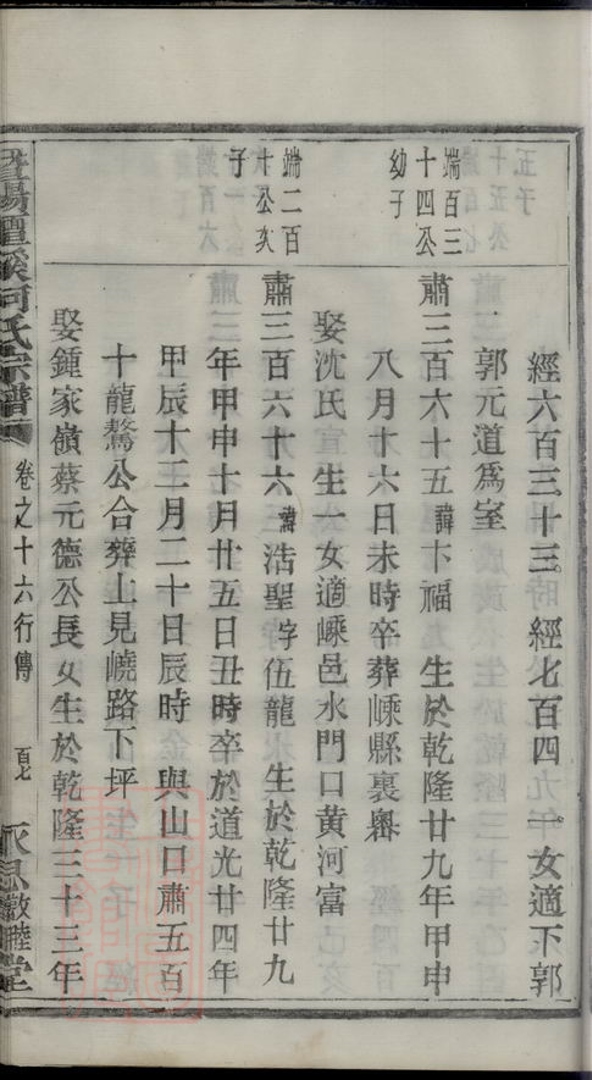 經六百三十三 經七百四 一女適下郭
郭元道爲室
端百三
十四公
幼子
肅三百六十五諱卞福 生於乾隆廿九年甲申
八月十六日未時卒葬嵊縣裏㟁
娶沈氏宣生一女適嵊邑水門口黄河富
端二百
十公次
子
肅三百六十六諱浩聖字伍龍 生於乾隆廿九
年甲申十月廿五日丑時卒於道光廿四年
甲辰十二月二十日辰時 與山口肅五百
十龍驁公合葬上見嶢路下坪
娶鍾家嶺蔡元德公長女生於乾隆三十三年
暨陽豐溪何氏宗譜
卷之十六行傳
百七
永思敦睦堂